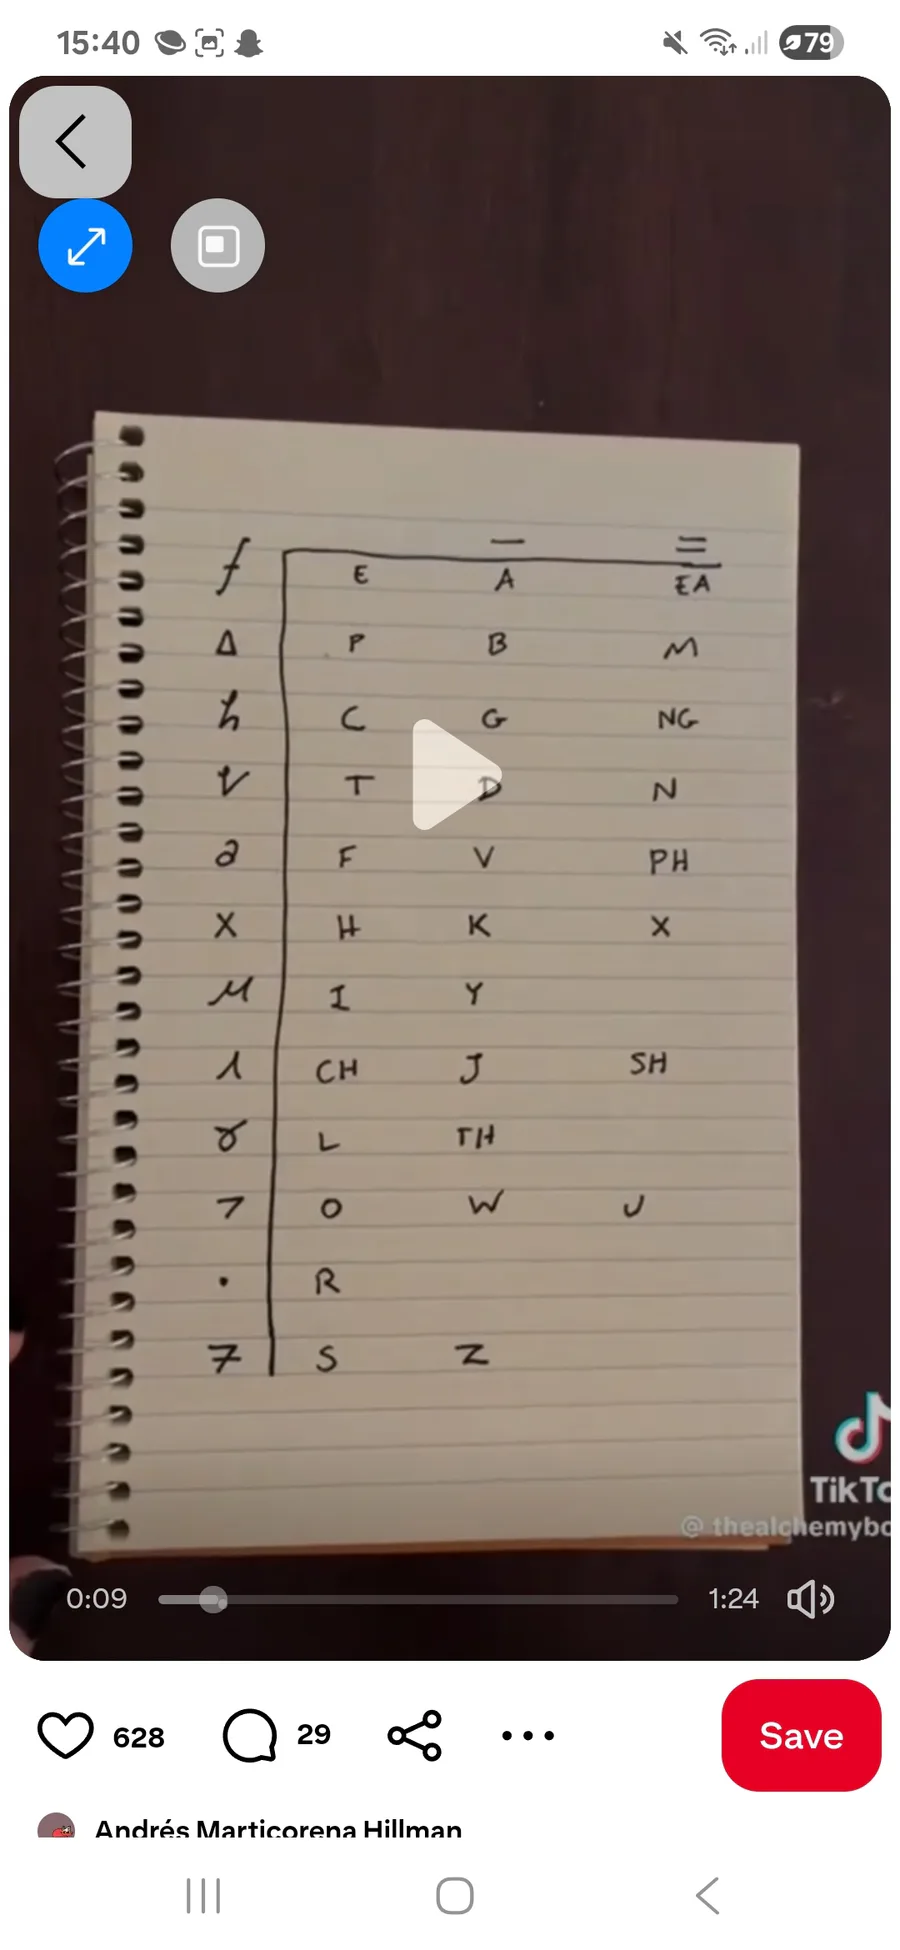 15:40 79
— =
f E A EA
Δ P B M
h C G NG
V T D N
a F V PH
X H K X
M I Y
λ CH J SH
ɤ L TH
7 O W U
• R
7 S Z
TikTo
@ thealchemybo
0:09 1:24
628 29 Save
Andrés Marticorena Hillman